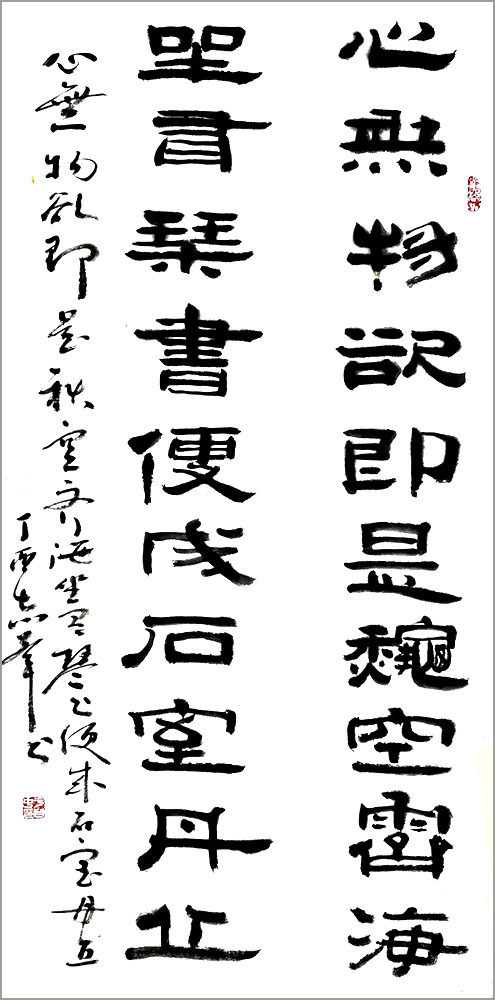 心無物欲即是龝空霽海
坐有琴書便成石室丹丘
心無物欲即是秋空齐海坐有琴书便成石室丹丘
丁酉志书